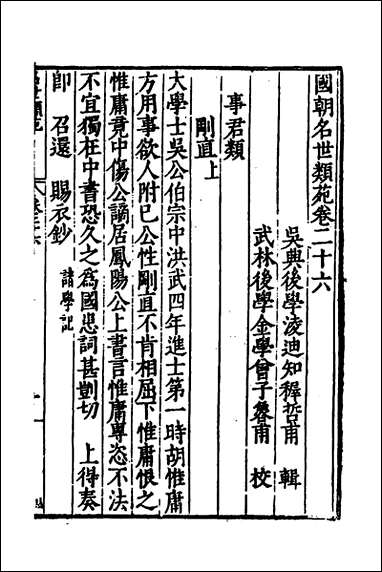 國朝名世類苑卷二十六
吳興後學凌迪知穉哲甫 輯
武林後學金學曾子魯甫 校
事君類
剛直上
大學士吳公伯宗中洪武四年進士第一時胡惟庸
方用事欲人附已公性剛直不肯相屈下惟庸恨之
惟庸竟中傷公謫居鳳陽公上書言惟庸專恣不法
不宜獨在中書恐久之為國患詞甚剴切 上得奏
卽 召還 賜衣鈔 講學記